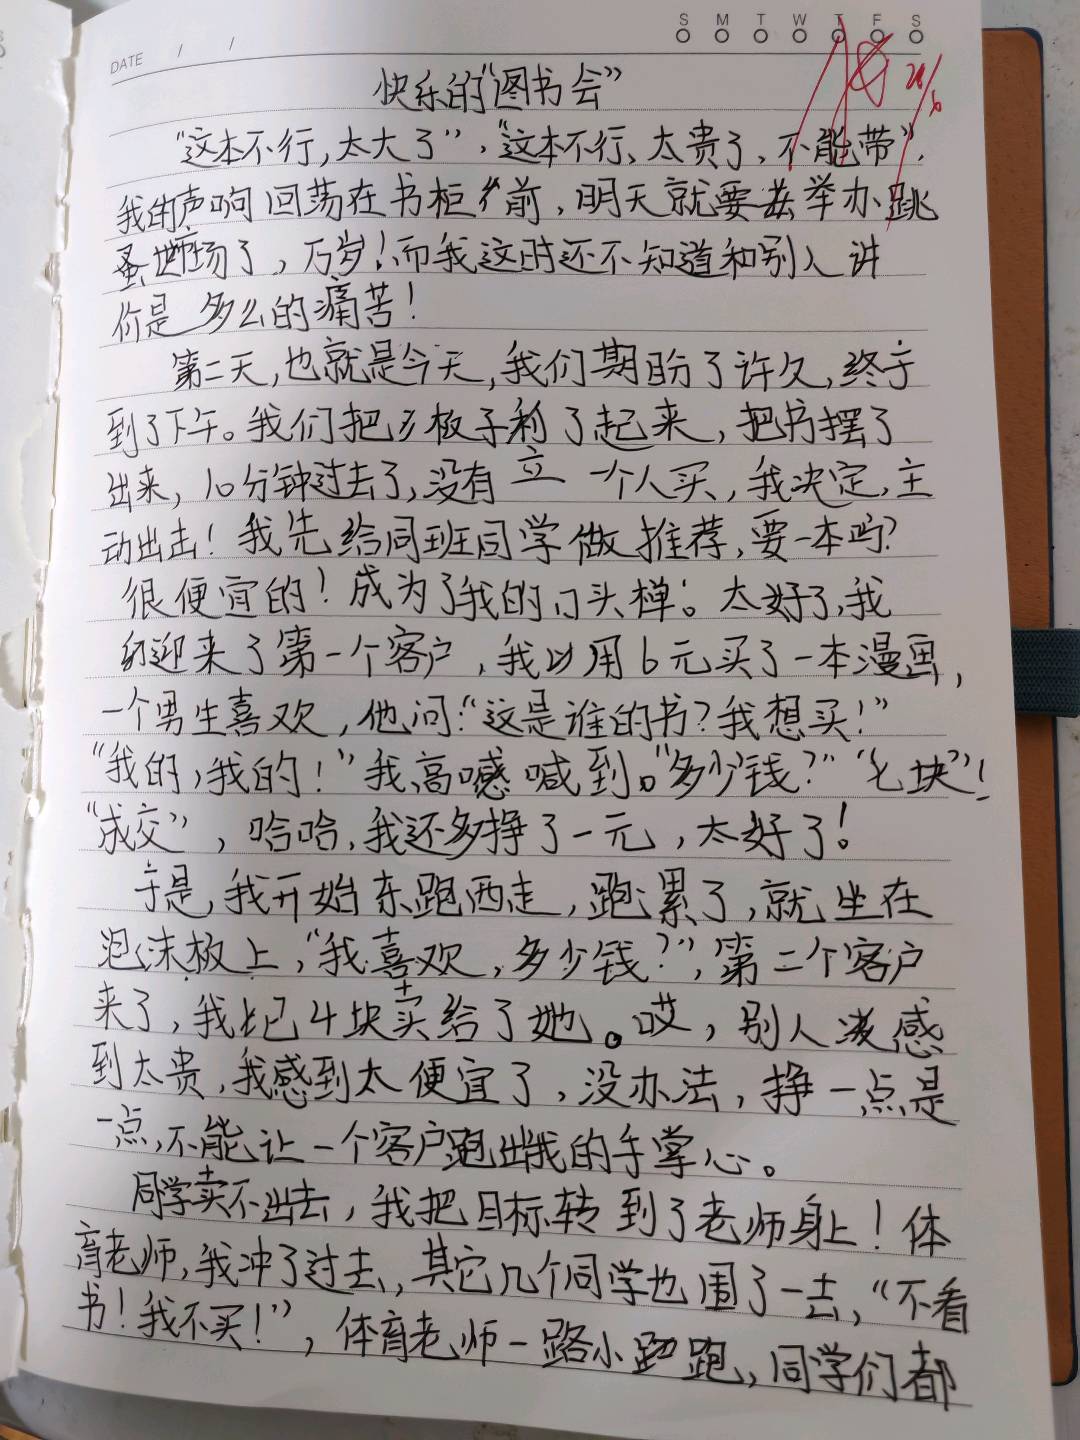 S M T W T F S
DATE / /
快乐的"图书会"
"这本不行,太大了","这本不行、太贵了,不能带".
我的声响回荡在书柜前,明天就要去举办跳
蚤市场了,万岁!而我这时还不知道和别人讲
价是多么的痛苦!
第二天,也就是今天,我们期盼了许久,终于
到了下午。我们把板子利了起来,把书摆了
立
出来,10分钟过去了,没有一个人买,我决定,主
动出击!我先给同班同学做推荐,要一本吗?
很便宜的!成为了我的口头禅。太好了,我
迎来了第一个客户,我以用6元买了一本漫画,
一个男生喜欢,他问:"这是谁的书?我想买!"
"我的,我的!"我高喊到。"多少钱?""七块"!
"成交",哈哈,我还多挣了一元,太好了!
于是,我开始东跑西走,跑累了,就坐在
泡沫板上,"我喜欢,多少钱?",第二个客户
来了,我把4块卖给了她。哎,别人感
到太贵,我感到太便宜了,没办法,挣一点是
一点,不能让一个客户跑出我的手掌心。
同学卖不出去,我把目标转到了老师身上!体
育老师,我冲了过去,其它几个同学也围了一去,"不看
书!我不买!",体育老师一路小跑,同学们都